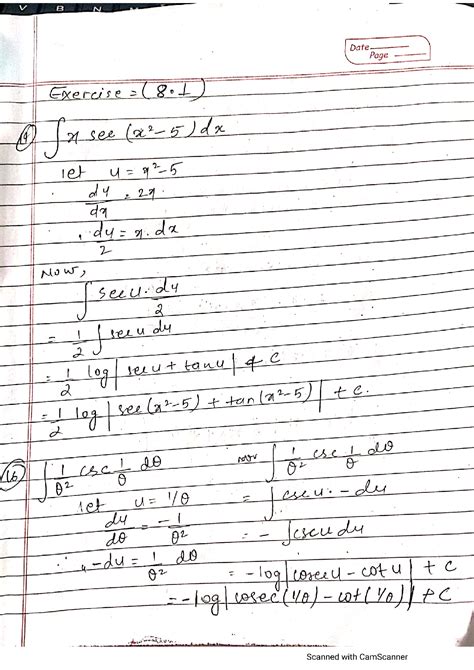 V B N
Date
Page
Exercise = (8.1)
9 ∫ x sec (x²-5) dx
let u = x²-5
du/dx = 2x
du/2 = x. dx
Now,
∫ sec u. du/2
= 1/2 ∫ sec u du
= 1/2 log | sec u + tan u | + c
= 1/2 log | sec (x²-5) + tan (x²-5) | + c.
16 ∫ 1/θ² csc 1/θ dθ
let u = 1/θ
du/dθ = -1/θ²
∴ -du = 1/θ² dθ
now ∫ 1/θ² csc 1/θ dθ
= ∫ csc u. - du
= - ∫ csc u du
= -log | cosec u - cot u | + c
= -log | cosec (1/θ) - cot (1/θ) | + c
Scanned with CamScanner